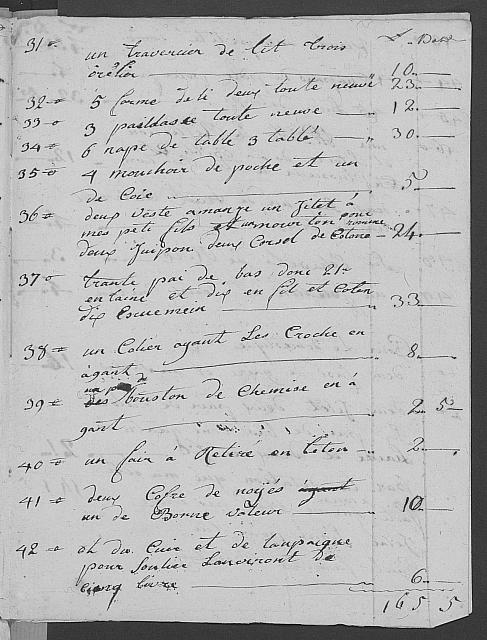 31° un traversier de lit trois
orélier 10
32° 5 forme de li deux toute neuve 23
33° 3 paildasse toute neuve 12
34° 6 nape de table 3 tablé 30
35° 4 mouchoir de poche et un
de Coië 5
36° deux veste a manze un filet à
mes péti fils et un mouviton pour
deux Juipon deux Corsol de Cotone 24
37° trante pai de bas donc 21
en laine et dix en fil et Coton
dix Escuemein 33
38° un Colier ayant Les Croche en
argant 8
39° un p de
bouston de Chemise en á
gant 2 5
40° un fair à Retire en leton 2
41° deux Cofre de noyés ayant
un de Bonne valeur 10
42° oh du Cuir et de lanpaigne
pour soulier Lanviront de
cinq livre 6
165 5